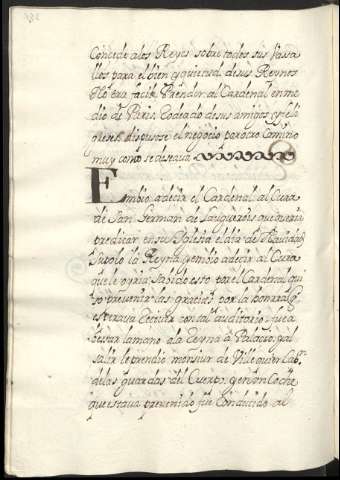 Concede a los Reyes sobre todos sus Vassa
llos para el bien y quietud de sus Reynos
No era facil Prender al Cardenal en me
dio de Paris, Rodeado de sus amigos y
se dispuso el negocio por otro Camino
muy como se deseava
Embio a decir el Cardenal al Cura
de San German de que queria
predicar en su Iglesia el dia de Nauidad
Supolo la Reyna y embio a decir al Cura
que le oyria, sabido esto por el Cardenal qui
so presentar las gracias por la honrra q
esperava Recivir con tal auditorio, fue a
besar la mano a la Reyna a Palacio, y al
salir le prendio monsiur de Cap.n
de las guardas del Cuerpo, y en un Coche
que estava prevenido fue Conducido al